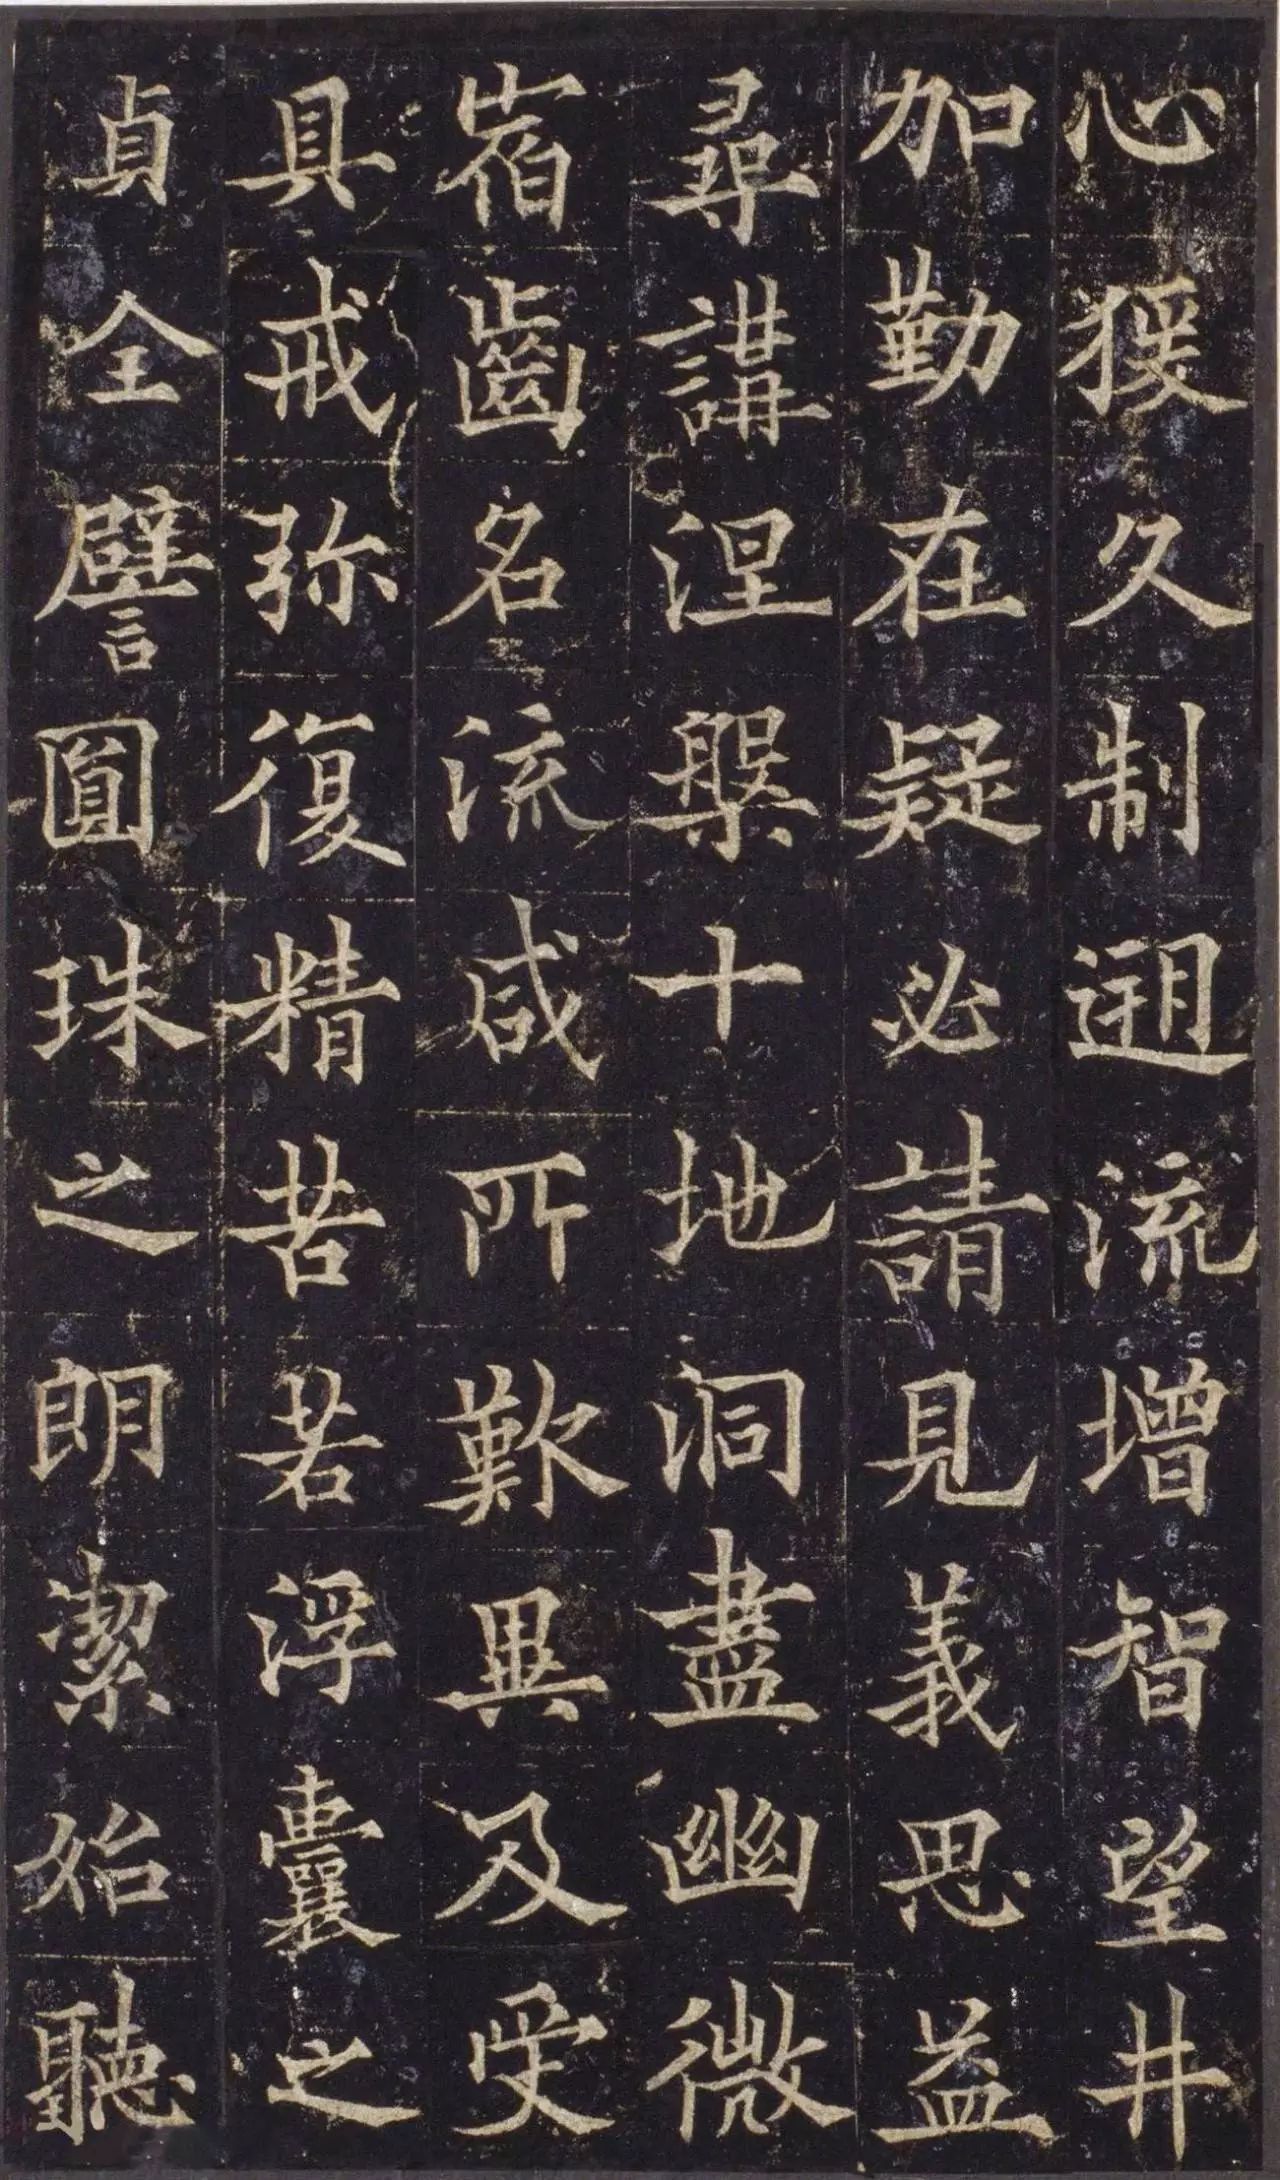 心猨久制遡流增智望井
加勤在疑必請見義思益
尋講涅槃十地洞盡幽微
宿齒名流咸所歎異及受
具戒弥復精苦若浮囊之
貞全譬圓珠之朗潔始聽